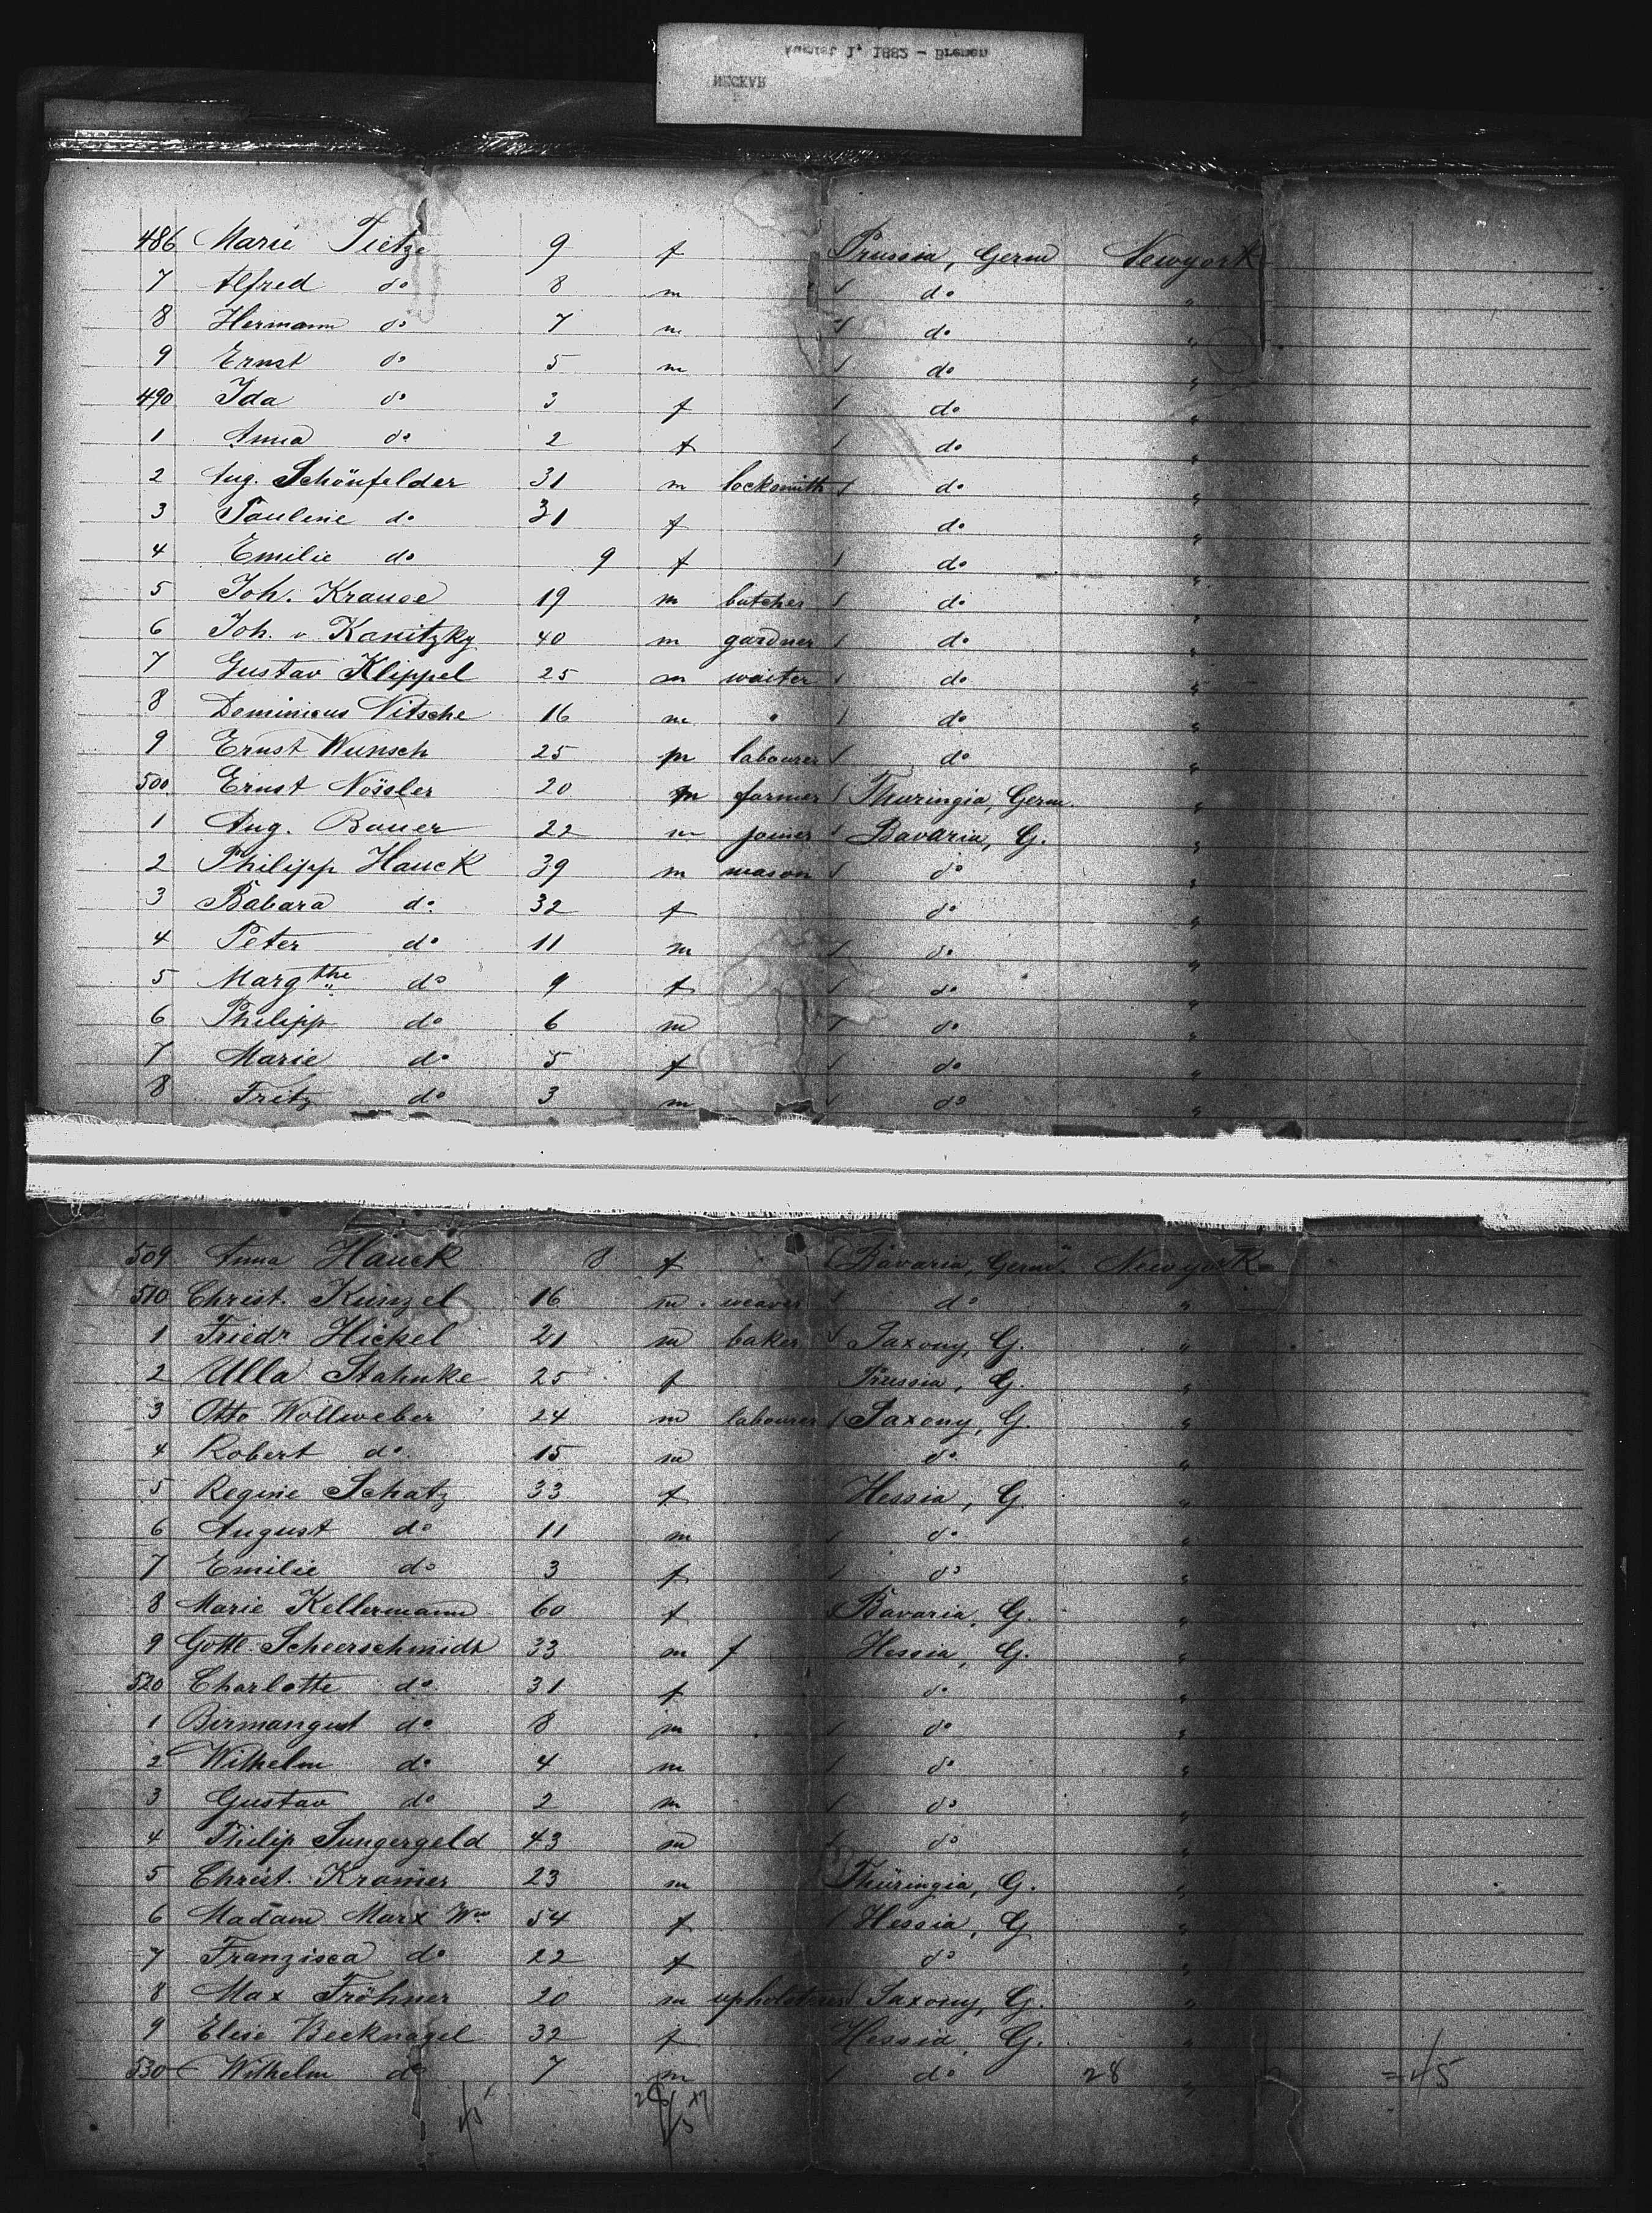 August 1, 1882 - Bremen
NECKAR
486 Marie Tietze 9 f Prussia, Germ Newyork
7 Alfred do 8 m / do "
8 Hermann do 7 m / do "
9 Ernst do 5 m / do "
490 Ida do 3 f / do "
1 Anna do 2 f / do "
2 Aug. Schönfelder 31 m locksmith / do "
3 Pauline do 31 f do "
4 Emilie do 9 f / do "
5 Joh. Krause 19 m butcher / do "
6 Joh. v Kanitzky 40 m gardner / do "
7 Gustav Klippel 25 m waiter / do "
8 Dominicus Nitsche 16 m " / do "
9 Ernst Wunsch 25 m labourer / do "
500 Ernst Nössler 20 m farmer / Thuringia, Germ. "
1 Aug. Bauer 22 m joiner / Bavaria, G. "
2 Philipp Hauck 39 m mason / do "
3 Babara do. 32 f do "
4 Peter do 11 m / do "
5 Margthe do 9 f / do "
6 Philipp do 6 m / do "
7 Marie do 5 f / do "
8 Fritz do 3 m / do "
509 Anna Hauck 8 f / Bavaria, Germ. Newyork
510 Christ. Künzel 16 m weaver / do "
1 Friedr Hickel 21 m baker / Saxony, G. "
2 Ulla Stahnke 25 f Prussia, G. "
3 Otto Wollweber 24 m labourer / Saxony, G. "
4 Robert do. 15 m do "
5 Regine Schatz 33 f Hessia, G. "
6 August do 11 m / do "
7 Emilie do 3 f / do "
8 Marie Kellermann 60 f Bavaria, G. "
9 Gottl. Scheerschmidt 33 m f Hessia, G. "
520 Charlotte do 31 f do "
1 do 8 m / do "
2 Wilhelm do 4 m / do "
3 Gustav do 2 m / do "
4 Philip Sungergeld 43 m / do "
5 Christ. Kramer 23 m Thüringia, G. "
6 Madam Marx Ww. 54 f / Hessia, G "
7 Franzisca do 22 f do "
8 Max Fröhner 20 m upholsterer / Saxony, G. "
9 Elise Recknagel 32 f Hessia, G. "
530 Wilhelm do 7 m / do 28 " =45